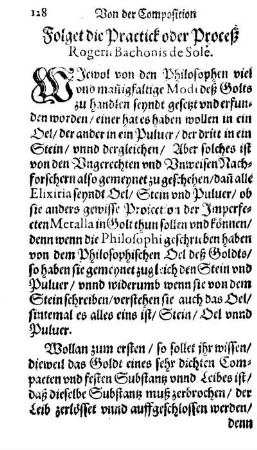 128 Von der Composition
Folget die Practick oder Proceß
Rogerii Bachonis de Sole.
WJewol von den Philosophen viel
vnd manigfaltige Modi deß Golts
zu handlen seyndt gesetzt vnd erfun-
den worden / einer hat es haben wollen in ein
Oel / der ander in ein Puluer / der dritt in ein
Stein / vnnd dergleichen / Aber solches ist
von den Vngerechten vnd Vnweisen Nach-
forschern also gemeynet zu geschehen / dañ alle
Elixiria seyndt Oel / Stein vnd Puluer / ob
sie anders gewisse Proiection der Imperfe-
cten Metalla in Golt thun sollen vnd können /
denn wenn die Philosophi geschriben haben
von dem Philosophischen Oel deß Goldts /
so haben sie gemeynet zugleich den Stein vnd
Puluer / vnnd widerumb wenn sie von dem
Stein schreiben / verstehen sie auch das Oel /
sintemal es alles eins ist / Stein / Oel vnnd
Puluer.
Wollan zum ersten / so sollet jhr wissen /
dieweil das Goldt eines sehr dichten Com-
pacten vnd festen Substantz vnnd Leibes ist /
daß dieselbe Substantz muß zerbrochen / der
Leib zerlösset vnnd auffgeschlossen werden /
denn